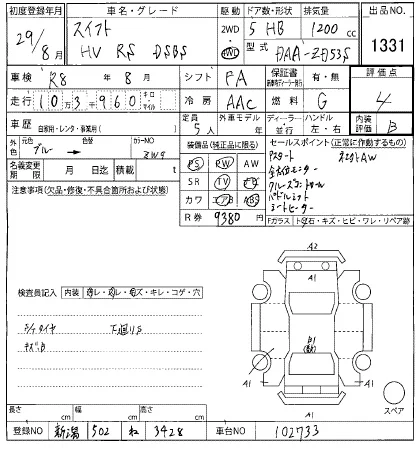 初度登録年月 車名・グレード 駆動 ドア数・形状 排気量 出品NO.
29/8月 スイフト 2WD 5 HB 1200cc 1331
HV RS DSBS 4WD 型式 DAA-ZD53S
車検 R8年8月 シフト FA 保証書 有・無 評価点
走行 10 3 960 キロ マイル 冷房 AAC 燃料 G 4
車歴 自家用・レンタ・事業用( ) 定員 5人 外車モデル 年 ディーラー 並行 ハンドル 左・右 内装評価 B
外色 元色 ブルー 色替 カラーNO ZWG
装備品(純正品に限る) セールスポイント(正常に作動するもの)
PS PW AW
SR TV ナビ
カワ エアB ABS
R券 9380円
名義変更期限 月 日迄 積載 t
注意事項(欠品・修復・不具合箇所および状態)
Pスタート
クルーズコントロール
パドルシフト
シートヒーター
Fガラス トビ石・キズ・ヒビ・ワレ・リペア跡
検査員記入 内装 スレ・コゲ・穴
下廻りS
A2
A1 A1
A1 A1
スペア
長さ cm 幅 cm 高さ cm
登録NO 新潟 502 ね 3428 車台NO 102733